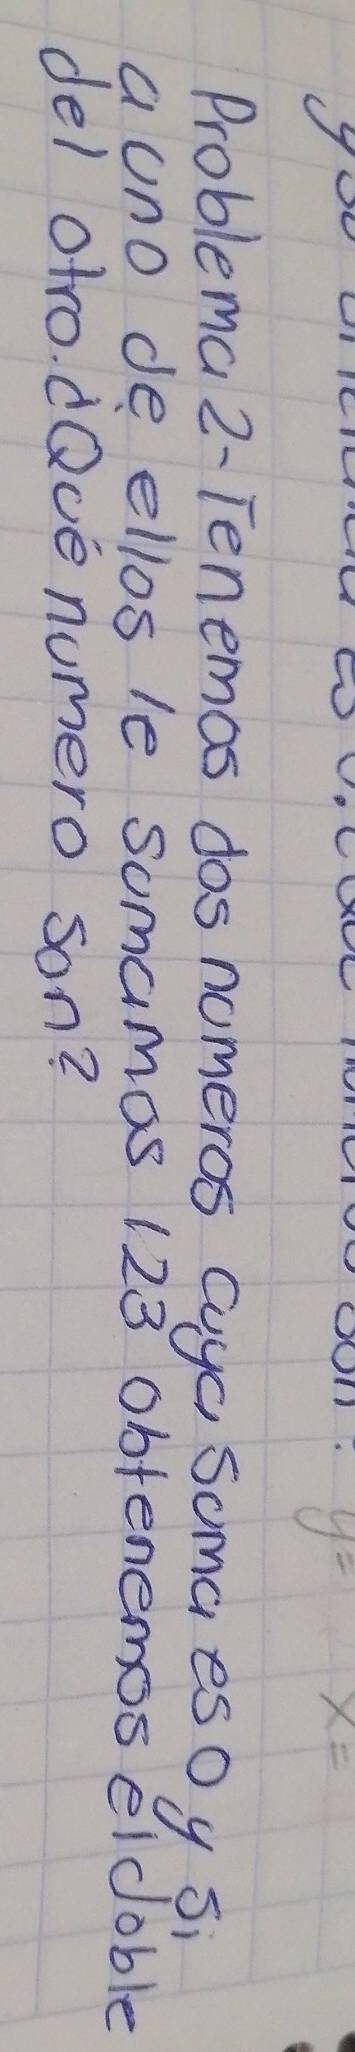 son?
y= x=
Problema 2- Tenemos dos numeros cuya suma es 0 y si
a uno de ellos le sumamos 123 obtenemos el doble
del otro. ¿Qué numero son?